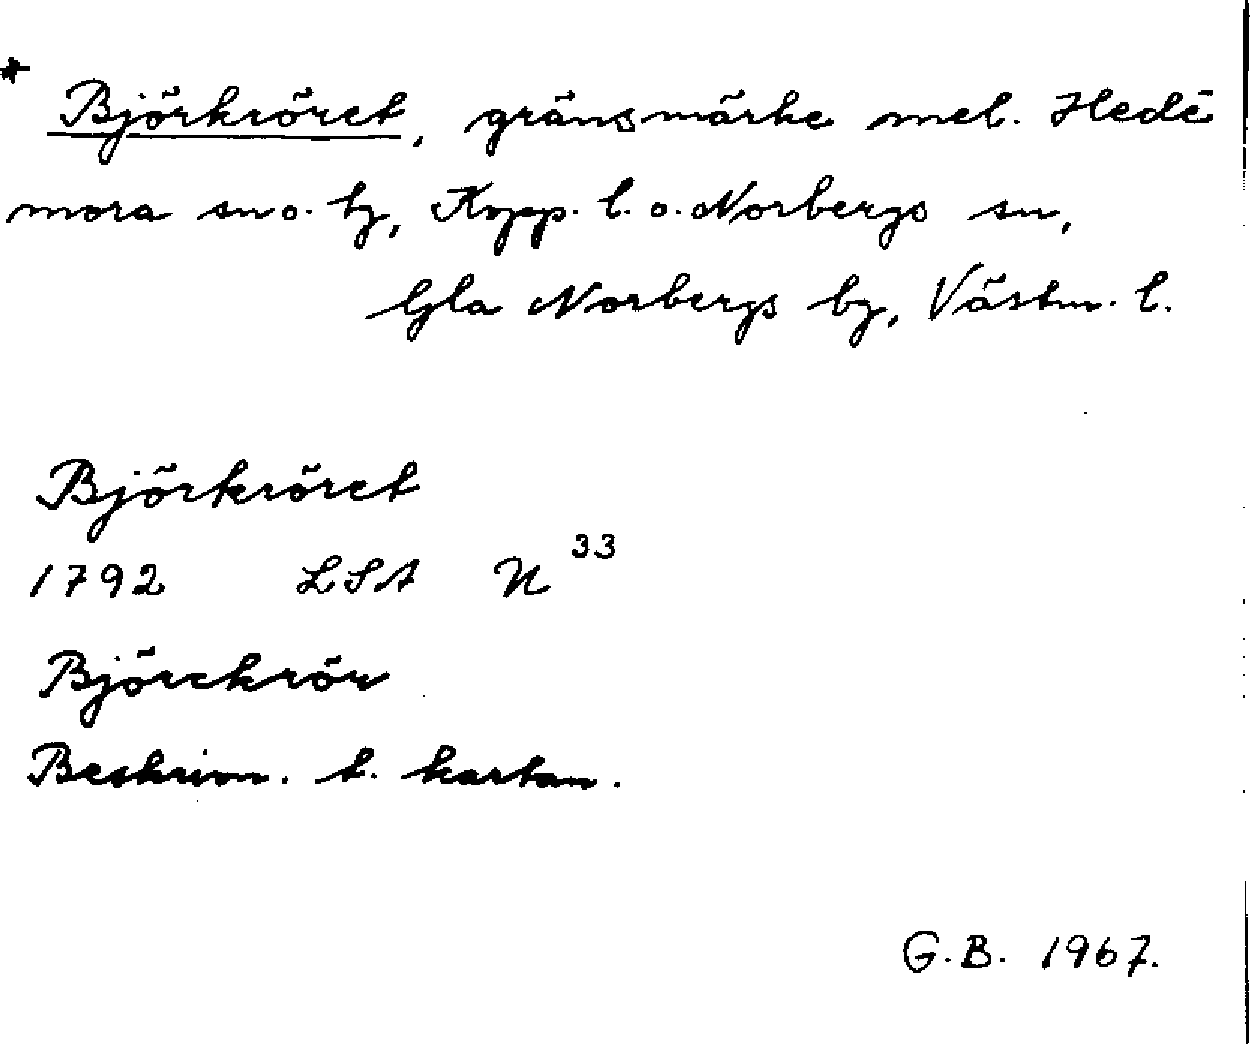 * Björkröret, gränsmärke mel. Hede-
mora sn o. by, Kopp. l. o. Norbergs sn,
Gla Norbergs by, Västm. l.
Björkröret
1792 LSA N 33
Björckrör
Beskrivn. t. kartan.
G.B. 1967.